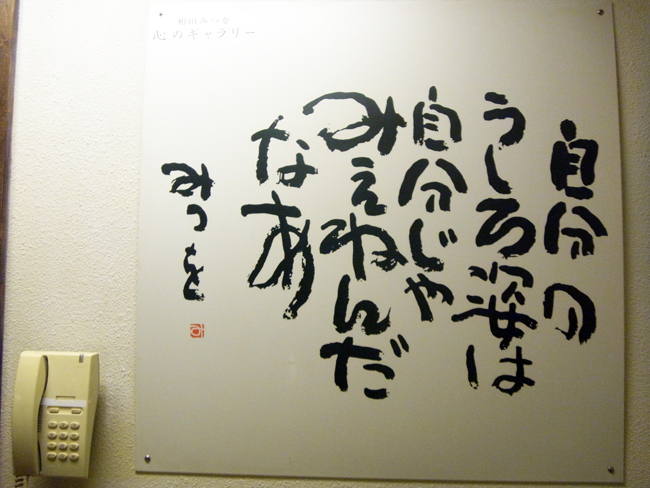 相田みつを
心のギャラリー
自分の
うしろ姿は
自分じゃ
みえねんだ
なあ
みつを